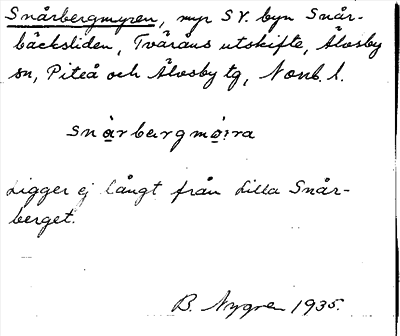 Snårbergmyren, myr SV. byn Snår-
bäcksliden, Tvåråns utskifte, Älvsby
sn, Piteå och Älvsby tg, Nonb. l.
snårbærgmø̣:ra
Ligger ej långt från Lilla Snår-
berget.
B. Nygren 1935.